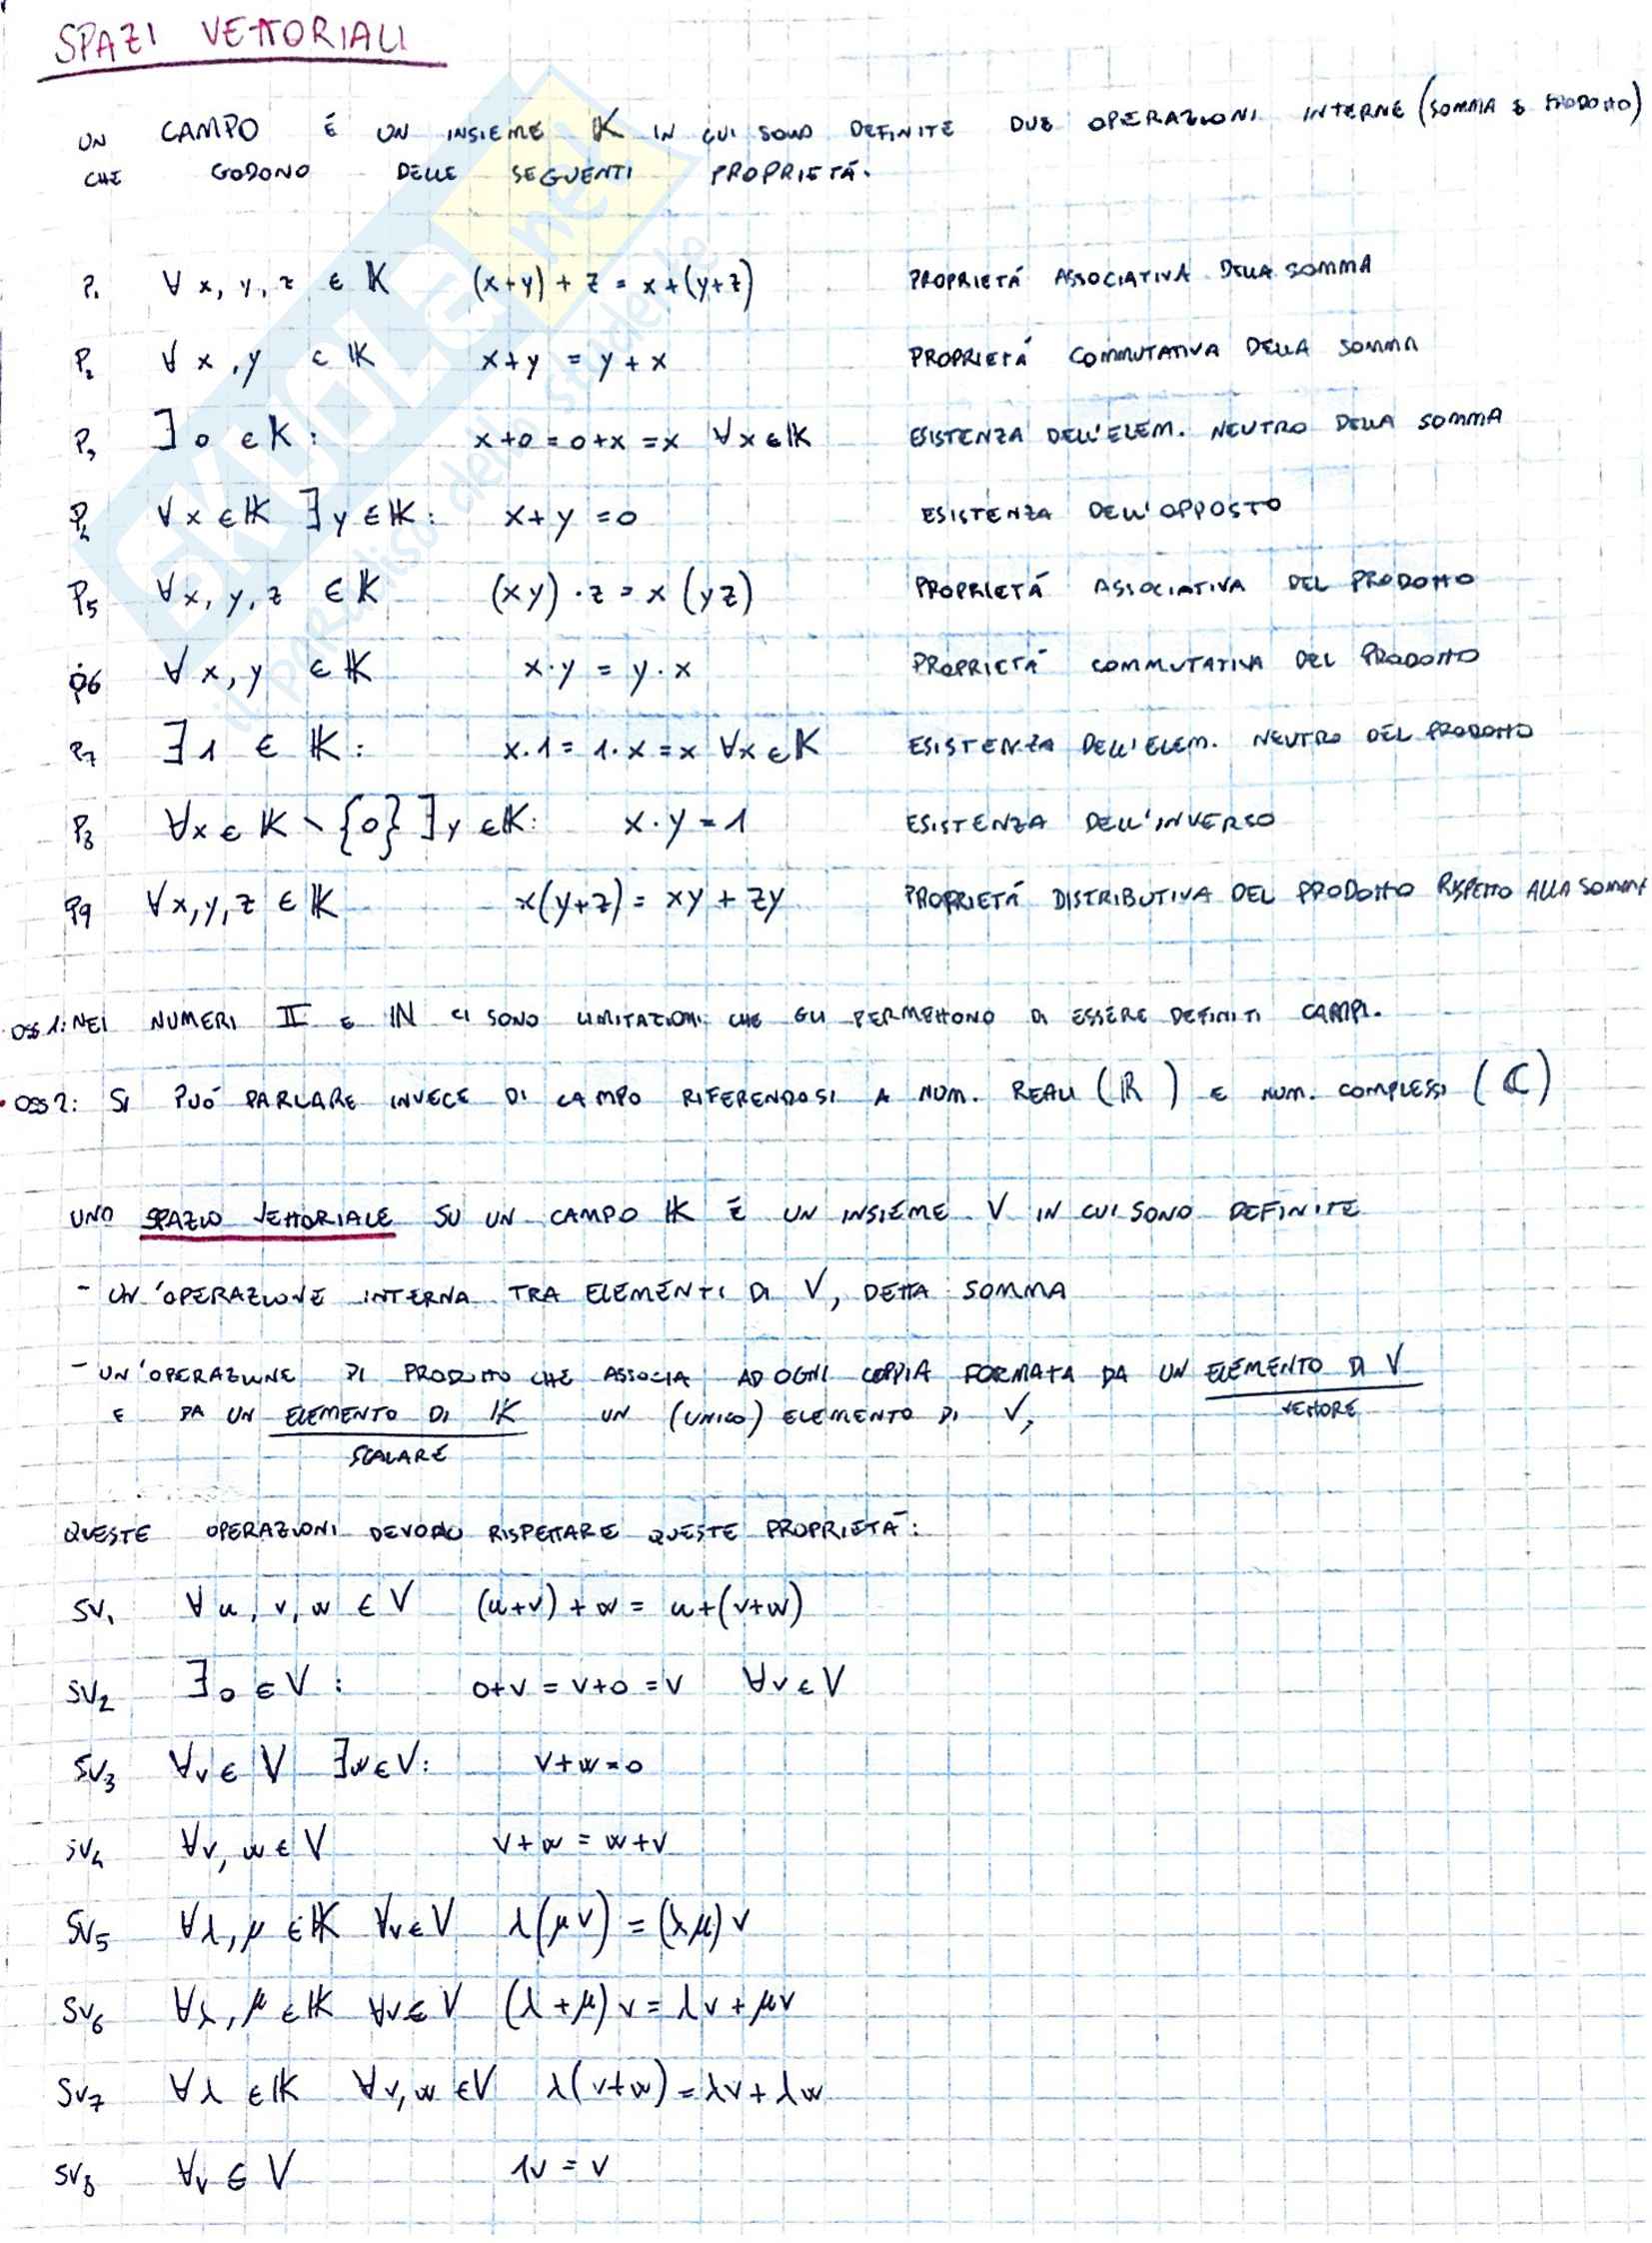 SPAZI VETTORIALI
UN CAMPO É UN INSIEME 𝕂 IN CUI SONO DEFINITE DUE OPERAZIONI INTERNE (SOMMA E PRODOTTO)
CHE GODONO DELLE SEGUENTI PROPRIETÁ.
P1 ∀ x, y, z ∈ 𝕂 (x+y) + z = x+(y+z) PROPRIETÁ ASSOCIATIVA DELLA SOMMA
P2 ∀ x, y ∈ 𝕂 x+y = y+x PROPRIETÁ COMMUTATIVA DELLA SOMMA
P3 ∃ 0 ∈ 𝕂: x+0=0+x=x ∀x∈𝕂 ESISTENZA DELL'ELEM. NEUTRO DELLA SOMMA
P4 ∀x∈𝕂 ∃y∈𝕂: x+y=0 ESISTENZA DELL'OPPOSTO
P5 ∀x, y, z ∈ 𝕂 (xy)·z = x(yz) PROPRIETÁ ASSOCIATIVA DEL PRODOTTO
P6 ∀x, y ∈ 𝕂 x·y = y·x PROPRIETÁ COMMUTATIVA DEL PRODOTTO
P7 ∃1 ∈ 𝕂: x·1=1·x=x ∀x∈𝕂 ESISTENZA DELL'ELEM. NEUTRO DEL PRODOTTO
P8 ∀x∈𝕂∖{0} ∃y∈𝕂: x·y=1 ESISTENZA DELL'INVERSO
P9 ∀x,y,z ∈ 𝕂 x(y+z) = xy + zy PROPRIETÁ DISTRIBUTIVA DEL PRODOTTO RISPETTO ALLA SOMMA
OSS 1: NEI NUMERI II E ℕ CI SONO LIMITAZIONI CHE GLI PERMETTONO DI ESSERE DEFINITI CAMPI.
OSS 2: SI PUÓ PARLARE INVECE DI CAMPO RIFERENDOSI A NUM. REALI (ℝ) E NUM. COMPLESSI (ℂ)
UNO SPAZIO VETTORIALE SU UN CAMPO 𝕂 É UN INSIEME V IN CUI SONO DEFINITE
- UN'OPERAZIONE INTERNA TRA ELEMENTI DI V, DETTA SOMMA
- UN'OPERAZIONE DI PRODOTTO CHE ASSOCIA AD OGNI COPPIA FORMATA DA UN ELEMENTO DI V
VETTORE
E DA UN ELEMENTO DI 𝕂 UN (UNICO) ELEMENTO DI V,
SCALARE
QUESTE OPERAZIONI DEVONO RISPETTARE QUESTE PROPRIETÁ:
SV1 ∀u, v, w ∈ V (u+v)+w = u+(v+w)
SV2 ∃0∈V: 0+v=v+0=v ∀v∈V
SV3 ∀v∈V ∃w∈V: v+w=0
SV4 ∀v, w∈V v+w = w+v
SV5 ∀λ, μ ∈𝕂 ∀v∈V λ(μv) = (λμ)v
SV6 ∀λ, μ ∈𝕂 ∀v∈V (λ+μ)v = λv + μv
SV7 ∀λ ∈𝕂 ∀v, w ∈V λ(v+w) = λv + λw
SV8 ∀v ∈ V 1v = v
SKUOLA.net
il paradiso dello studente